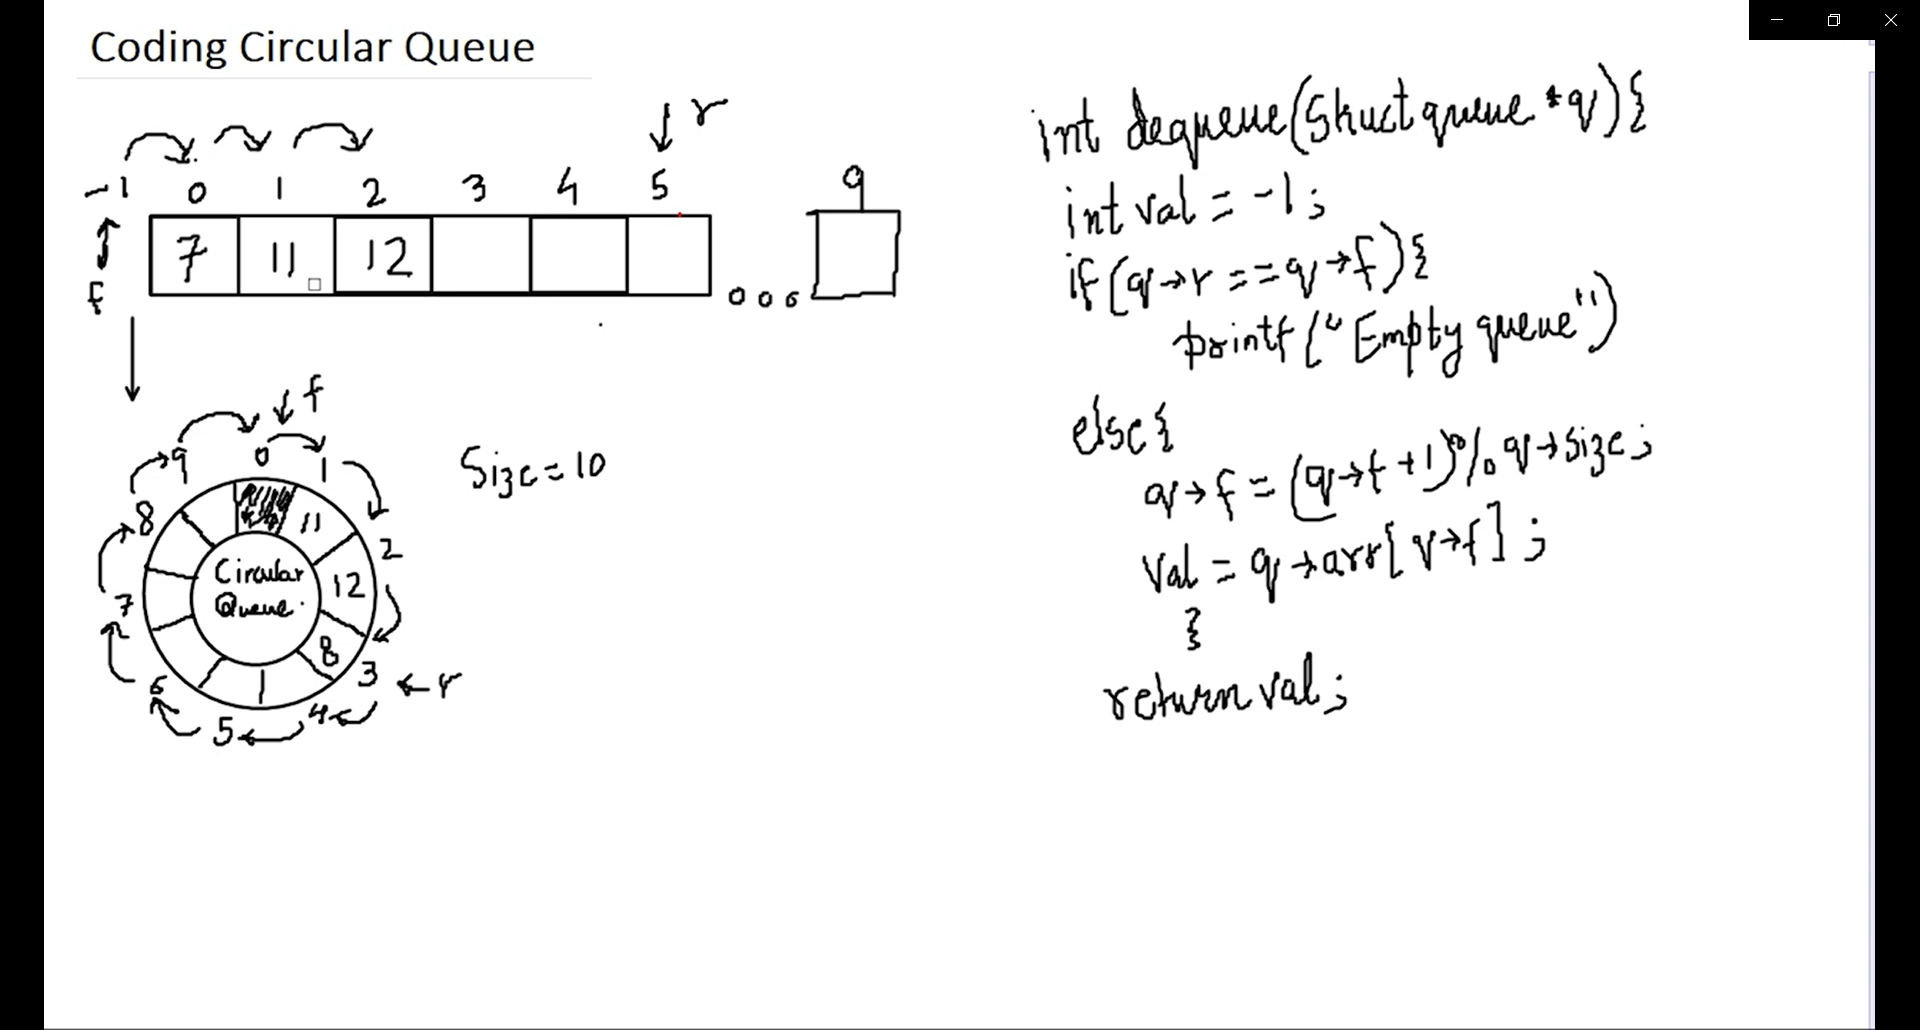 Coding Circular Queue
r
-1 0 1 2 3 4 5 9
7 11 12
f
f
0 1 2 3 4 5 6 7 8 9
11 12 8
r
Circular
Queue
Size = 10
int dequeue(struct queue *q){
int val = -1;
if(q→r == q→f){
printf("Empty queue")
else{
q→f = (q→f +1)% q→size;
val = q→arr[q→f];
}
return val;